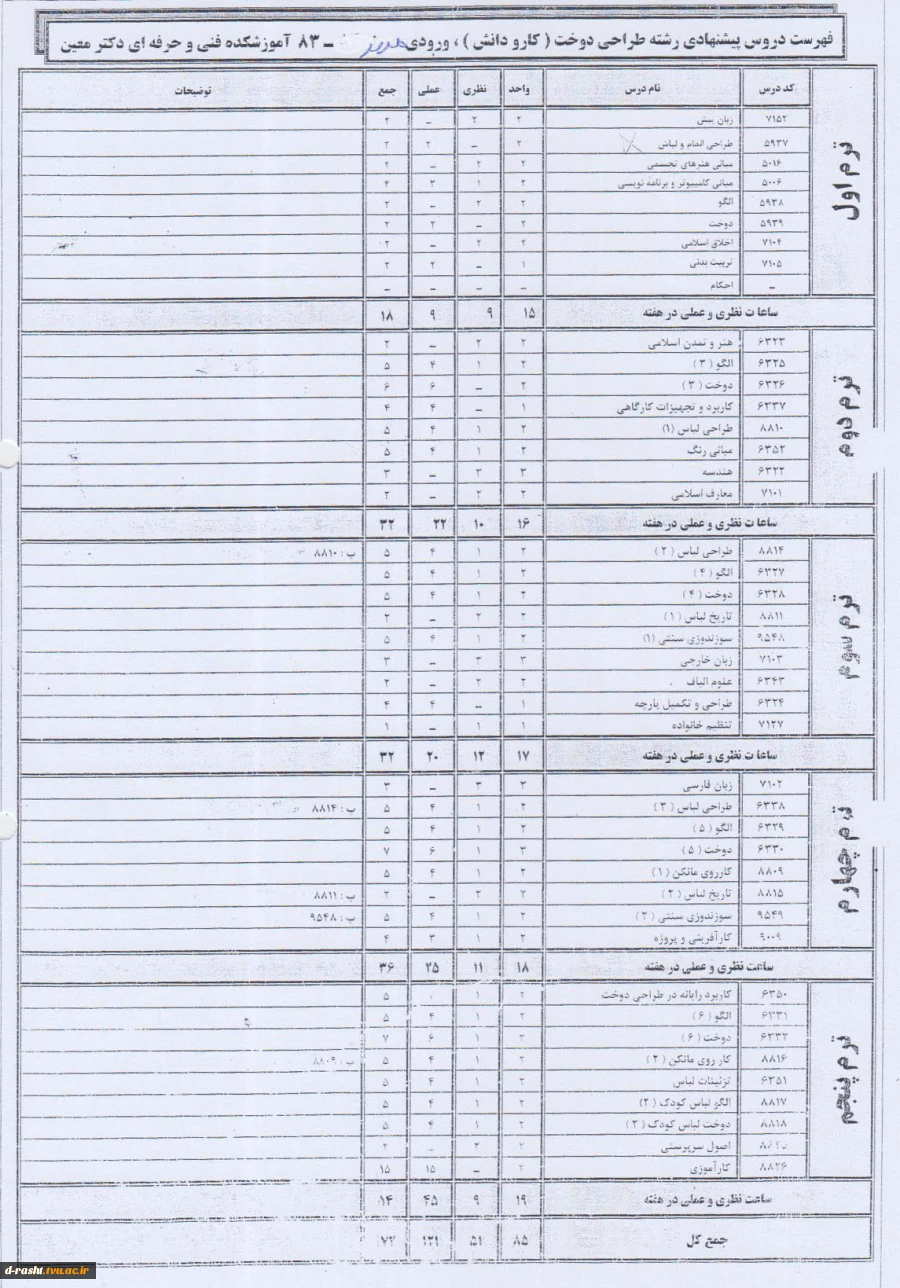 فهرست دروس پیشنهادی رشته طراحی دوخت ( کار و دانش ) ، ورودی ـ ۸۳ آموزشکده فنی و حرفه ای دکتر معین
کد درس نام درس واحد نظری عملی جمع توضیحات
ترم اول
۷۱۵۲ زبان پیش ۲ ۲ ـ ۲
۵۹۳۷ طراحی اندام و لباس ۲ ـ ۲ ۲
۵۰۱۶ مبانی هنرهای تجسمی ۲ ۲ ـ ۲
۵۰۰۶ مبانی کامپیوتر و برنامه نویسی ۲ ۱ ۳ ۴
۵۹۳۸ الگو ۲ ۲ ـ ۲
۵۹۳۹ دوخت ۲ ـ ۲ ۲
۷۱۰۴ اخلاق اسلامی ۲ ۲ ـ ۲
۷۱۰۵ تربیت بدنی ۱ ـ ۲ ۲
ـ احکام ـ ـ ـ ـ
ساعات نظری و عملی در هفته ۱۵ ۹ ۹ ۱۸
ترم دوم
۶۳۲۳ هنر و تمدن اسلامی ۲ ۲ ـ ۲
۶۳۲۵ الگو ( ۳ ) ۲ ۱ ۴ ۵
۶۳۲۶ دوخت ( ۳ ) ۲ ـ ۶ ۶
۶۳۳۷ کاربرد و تجهیزات کارگاهی ۱ ـ ۴ ۴
۸۸۱۰ طراحی لباس (۱) ۲ ۱ ۴ ۵
۶۳۵۲ مبانی رنگ ۲ ۱ ۴ ۵
۶۳۲۲ هندسه ۳ ۳ ـ ۳
۷۱۰۱ معارف اسلامی ۲ ۲ ـ ۲
ساعات نظری و عملی در هفته ۱۶ ۱۰ ۲۲ ۳۲
ترم سوم
۸۸۱۴ طراحی لباس ( ۲ ) ۲ ۱ ۴ ۵ پ : ۸۸۱۰
۶۳۲۷ الگو ( ۴ ) ۲ ۱ ۴ ۵
۶۳۲۸ دوخت ( ۴ ) ۲ ۱ ۴ ۵
۸۸۱۱ تاریخ لباس ( ۱ ) ۲ ۲ ـ ۲
۹۵۴۸ سوزندوزی سنتی (۱) ۲ ۱ ۴ ۵
۷۱۰۳ زبان خارجی ۳ ۳ ـ ۳
۶۳۴۳ علوم الیاف ۲ ۲ ـ ۲
۶۳۲۴ طراحی و تکمیل پارچه ۱ ـ ۴ ۴
۷۱۲۷ تنظیم خانواده ۱ ۱ ـ ۱
ساعات نظری و عملی در هفته ۱۷ ۱۲ ۲۰ ۳۲
ترم چهارم
۷۱۰۲ زبان فارسی ۳ ۳ ـ ۳
۶۳۳۸ طراحی لباس ( ۳ ) ۲ ۱ ۴ ۵ پ : ۸۸۱۴
۶۳۲۹ الگو ( ۵ ) ۲ ۱ ۴ ۵
۶۳۳۰ دوخت ( ۵ ) ۳ ۱ ۶ ۷
۸۸۰۹ کارروی مانکن ( ۱ ) ۲ ۱ ۴ ۵
۸۸۱۵ تاریخ لباس ( ۲ ) ۲ ۲ ـ ۲ پ : ۸۸۱۱
۹۵۴۹ سوزندوزی سنتی ( ۲ ) ۲ ۱ ۴ ۵ پ : ۹۵۴۸
۹۰۰۹ کارآفرینی و پروژه ۲ ۱ ۳ ۴
ساعت نظری و عملی در هفته ۱۸ ۱۱ ۲۵ ۳۶
ترم پنجم
۶۳۵۰ کاربرد رایانه در طراحی دوخت ۲ ۱ ۵
۶۳۳۱ الگو ( ۶ ) ۲ ۱ ۴ ۵
۶۳۳۲ دوخت ( ۶ ) ۳ ۱ ۶ ۷
۸۸۱۶ کار روی مانکن ( ۲ ) ۲ ۱ ۴ ۵ پ : ۸۸۰۹
۶۳۵۱ تزئینات لباس ۲ ۱ ۴ ۵
۸۸۱۷ الگو لباس کودک ( ۲ ) ۲ ۱ ۴ ۵
۸۸۱۸ دوخت لباس کودک ( ۲ ) ۲ ۱ ۴ ۵
اصول سرپرستی ۲ ۲ ـ ۲
۸۸۲۶ کارآموزی ۲ ـ ۱۵ ۱۵
ساعت نظری و عملی در هفته ۱۹ ۹ ۴۵
جمع کل ۸۵ ۵۱ ۱۲۱
d-rasht.tvu.ac.ir